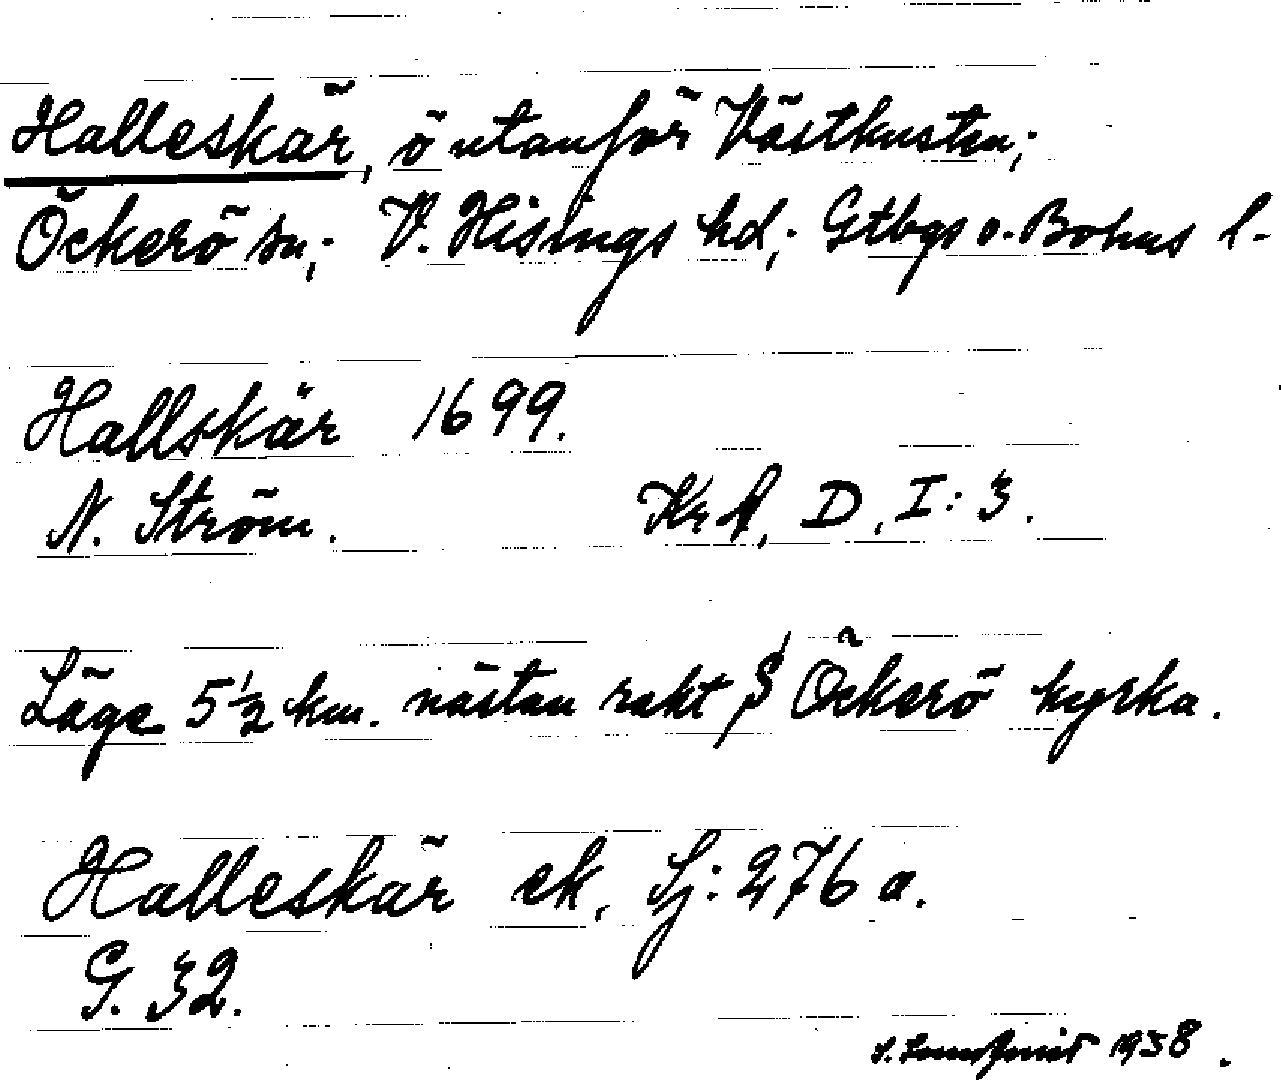 Halleskär, ö utanför Västkusten;
Öckerö sn; V. Hisings hd; Gtbgs o. Bohus l-
Hallskär 1699.
N. Ström. KrA, D, I: 3.
Läge 5 1/2 km. nästan rakt S Öckerö kyrka.
Halleskär ek. Sj: 276 a.
G. 32.
1938.